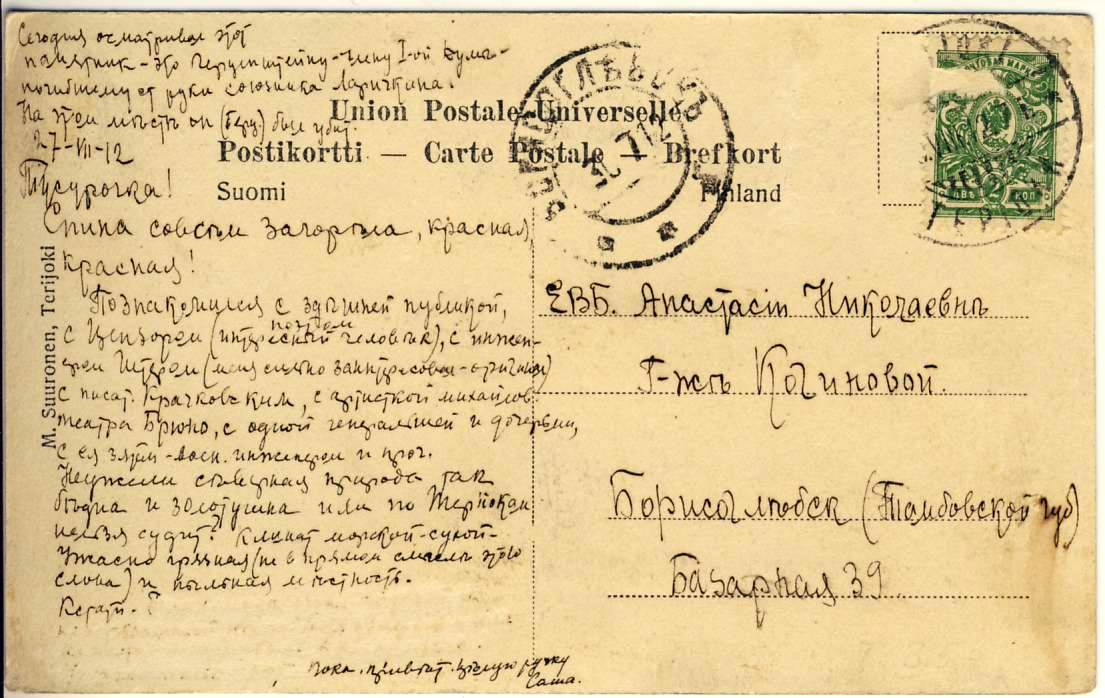 Сегодня осматривал этот
памятник - это Герценштейну - члену I-ой Думы -
погибшему от руки союзника Ларичкина.
На этом месте он (бюст) был убит.
27-VII-12
Union Postale Universelle
Postikortti — Carte Postale — Brefkort
Suomi Finland
Тусурочка!
Спина совсем загорела, красная,
красная!
Познакомился с здешней публикой,
с Цензором (интересный человек), с инжен-
ером
с писат. Крачковским, с артисткой михайлов.
театра Брюно, с одной генеральшей и дочерьми,
с ея зятем - воен. инженером и проч.
Неужели северная природа так
бедна и золотушна или по Териокам
нельзя судить? Климат морской - сухой -
Ужасно грязная (не в прямом смысле этого
слова) и пыльная местность.
Кстати - ?
Пока. целую ручку
Саша.
M. Suuronen, Terijoki
ЕВБ. Анастасіи Николаевнѣ
Г-жѣ Кочиновой.
Борисоглѣбск (Тамбовской губ)
Базарная 39.
БОРИСОГЛѢБСКЪ
МАРКА
2
ДВѢ КОП